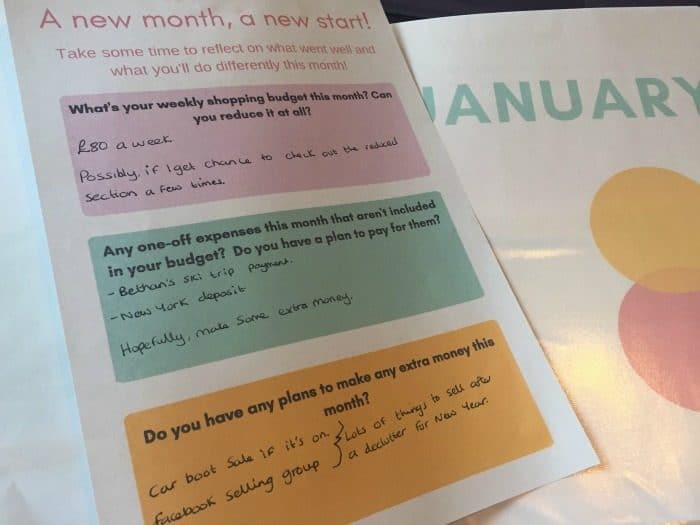 A new month, a new start!
Take some time to reflect on what went well and
what you'll do differently this month!
What's your weekly shopping budget this month? Can
you reduce it at all?
£80 a week.
Possibly, if I get chance to check out the reduced
section a few times.
Any one-off expenses this month that aren't included
in your budget? Do you have a plan to pay for them?
- Bethan's ski trip payment.
- New York deposit
Hopefully, make some extra money.
Do you have any plans to make any extra money this
month?
Car boot sale if it's on.
Facebook selling group
Lots of things to sell after
a declutter for New Year.
JANUARY